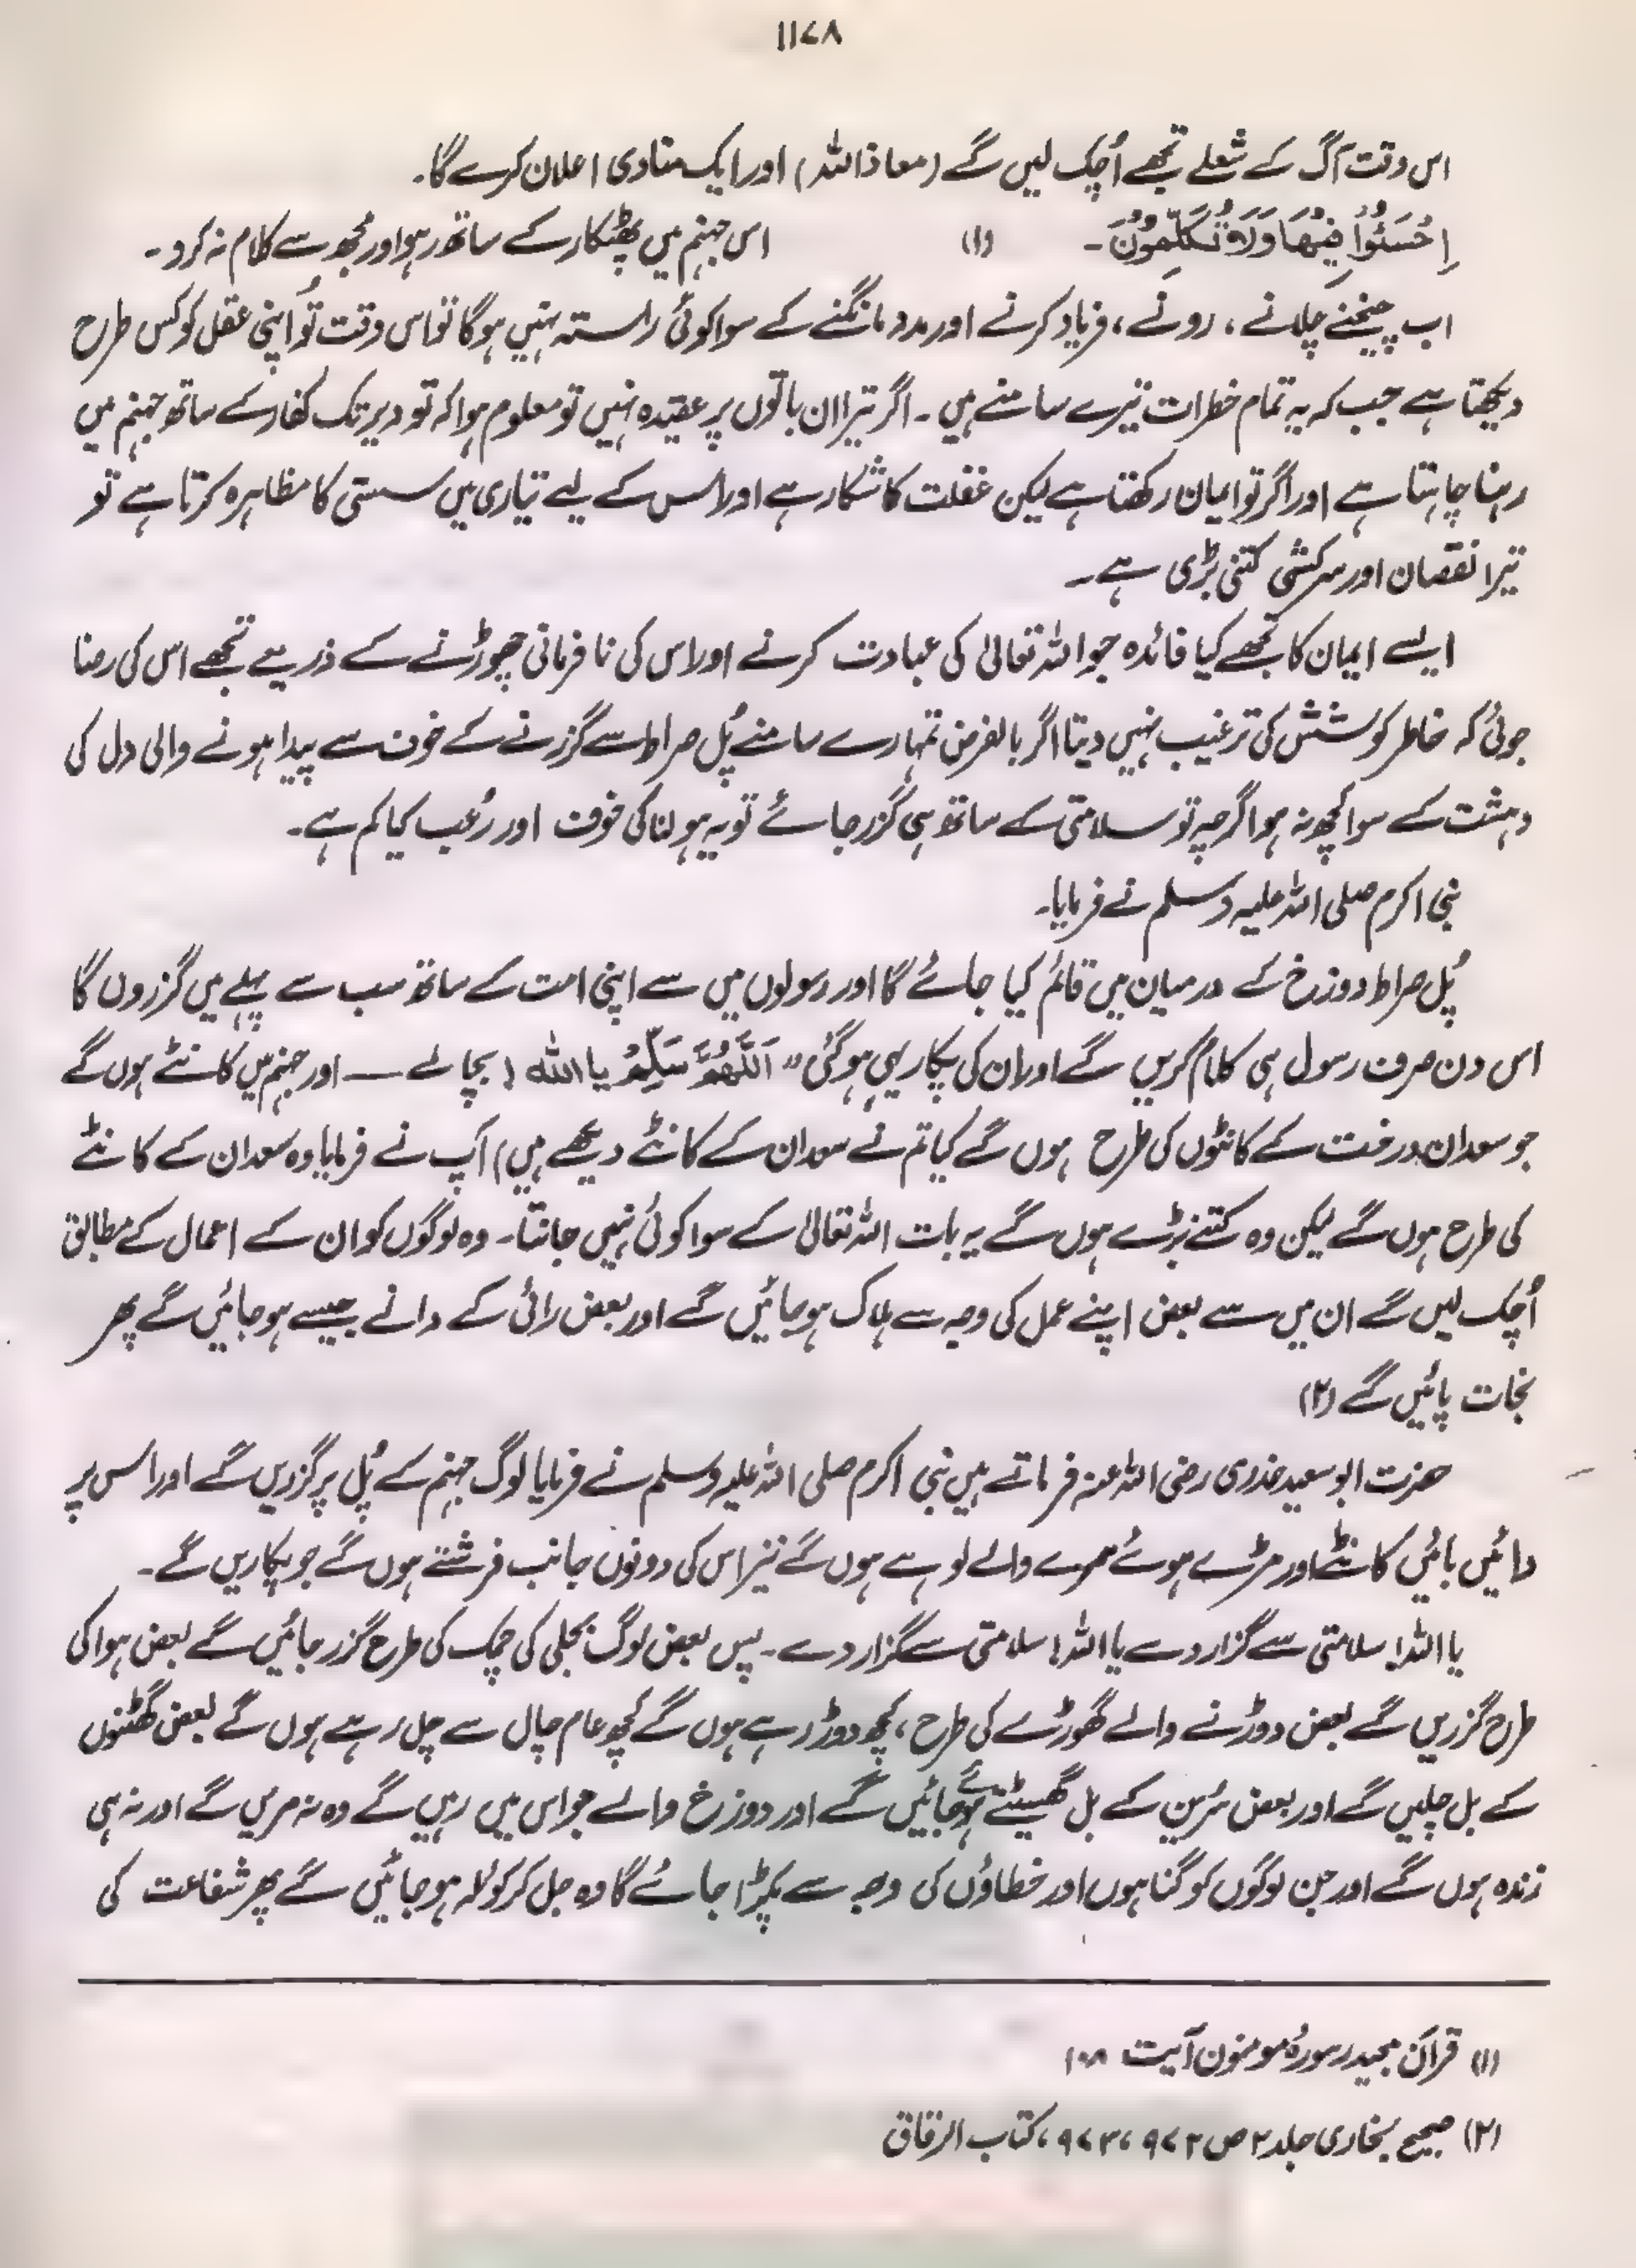 ۱۱۷۸
اس وقت آگ کے شعلے تجھے اُچک لیں گے (معاذ اللہ) اور ایک منادی اعلان کرے گا۔
اِخْسَئُوْا فِیْهَا وَلَا تُكَلِّمُوْنَ۔ (۱) اس جہنم میں پھٹکار کے ساتھ رہو اور مجھ سے کلام نہ کرو۔
اب چیخنے چلانے ، رونے ، فریاد کرنے اور مدد مانگنے کے سوا کوئی راستہ نہیں ہوگا تو اس وقت تُو اپنی عقل کو کس طرح
دیکھتا ہے جب کہ یہ تمام خطرات تیرے سامنے ہیں۔ اگر تیرا ان باتوں پر عقیدہ نہیں تو معلوم ہوا کہ تو دیر تک کفار کے ساتھ جہنم میں
رہنا چاہتا ہے اور اگر تو ایمان رکھتا ہے لیکن غفلت کا شکار ہے اور اس کے لیے تیاری میں سستی کا مظاہرہ کرتا ہے تو
تیرا نقصان اور سرکشی کتنی بڑی ہے۔
ایسے ایمان کا تجھے کیا فائدہ جو اللہ تعالیٰ کی عبادت کرنے اور اس کی نافرمانی چھوڑنے کے ذریعے تجھے اس کی رضا
جوئی کہ خاطر کوشش کی ترغیب نہیں دیتا اگر بالفرض تمہارے سامنے پُل صراط سے گزرنے کے خوف سے پیدا ہونے والی دل کی
دہشت کے سوا کچھ نہ ہو اگرچہ تو سلامتی کے ساتھ ہی گزر جائے تو یہ ہولناکی خوف اور رُعب کیا کم ہے۔
نبی اکرم صلی اللہ علیہ وسلم نے فرمایا۔
پُل صراط دوزخ کے درمیان میں قائم کیا جائے گا اور رسولوں میں سے اپنی امت کے ساتھ سب سے پہلے میں گزروں گا
اس دن صرف رسول ہی کلام کریں گے اور ان کی پکار یہی ہوگی " اَللّٰهُمَّ سَلِّمْ یا اللہ ! بچا لے — اور جہنم میں کانٹے ہوں گے
جو سعدان درخت کے کانٹوں کی طرح ہوں گے کیا تم نے سعدان کے کانٹے دیکھے ہیں) آپ نے فرمایا وہ سعدان کے کانٹے
کی طرح ہوں گے لیکن وہ کتنے بڑے ہوں گے یہ بات اللہ تعالیٰ کے سوا کوئی نہیں جانتا۔ وہ لوگوں کو ان کے اعمال کے مطابق
اُچک لیں گے ان میں سے بعض اپنے عمل کی وجہ سے ہلاک ہوجائیں گے اور بعض رائی کے دانے جیسے ہوجائیں گے پھر
نجات پائیں گے (۲)
حضرت ابو سعید خدری رضی اللہ عنہ فرماتے ہیں نبی اکرم صلی اللہ علیہ وسلم نے فرمایا لوگ جہنم کے پُل پر گزریں گے اور اس پر
دائیں بائیں کانٹے اور مڑے ہوئے سرے والے لوہے ہوں گے نیز اس کی دونوں جانب فرشتے ہوں گے جو پکاریں گے۔
یا اللہ! سلامتی سے گزار دے یا اللہ! سلامتی سے گزار دے۔ پس بعض لوگ بجلی کی چمک کی طرح گزر جائیں گے بعض ہوا کی
طرح گزریں گے بعض دوڑنے والے گھوڑے کی طرح ، کچھ دوڑ رہے ہوں گے کچھ عام چال سے چل رہے ہوں گے بعض گھٹنوں
کے بل چلیں گے اور بعض سُرین کے بل گھسیٹتے ہوئے جائیں گے اور دوزخ والے جو اس میں رہیں گے وہ نہ مریں گے اور نہ ہی
زندہ ہوں گے اور جن لوگوں کو گناہوں اور خطاؤں کی وجہ سے پکڑا جائے گا وہ جل کر کوئلہ ہوجائیں گے پھر شفاعت کی
(۱) قرآن مجید سورۂ مومنون آیت ۱۰۸
(۲) صحیح بخاری جلد ۲ ص ۹۷۲، ۹۷۳، کتاب الرقاق